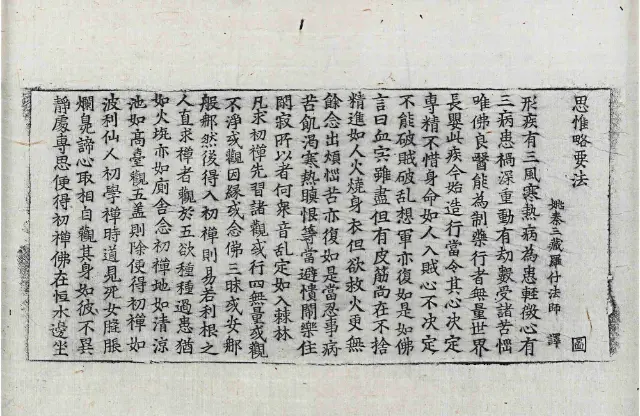 思惟略要法 圖
姚秦三藏羅什法師 譯
形疾有三風寒熱病為患輕微心有
三病患禍深重動有劫數受諸苦惱
唯佛良醫能為制藥行者無量世界
長嬰此疾今始造行當令其心決定
専精不惜身命如人入賊心不決定
不能破賊破乱想軍亦復如是如佛
言曰血宍雖盡但有皮筋尚在不捨
精進如人火燒身衣但欲救火更無
餘念出煩惱苦亦復如是當忍事病
苦飢渴寒熱瞋恨等當避憒閙樂住
閑寂所以者何衆音乱定如入𣗥林
凡求初禪先習諸觀或行四無量或觀
不淨或觀因緣或念佛三昧或安那
般那然後得入初禪則易若利根之
人直求禪者觀於五欲種種過患猶
如火坑亦如廁舍念初禪地如清涼
池如高臺觀五盖則除便得初禪如
波利仙人初學禪時道見死女膖脹
爛臰諦心取相自觀其身如彼不異
靜處專思便得初禪佛在恒水邊坐